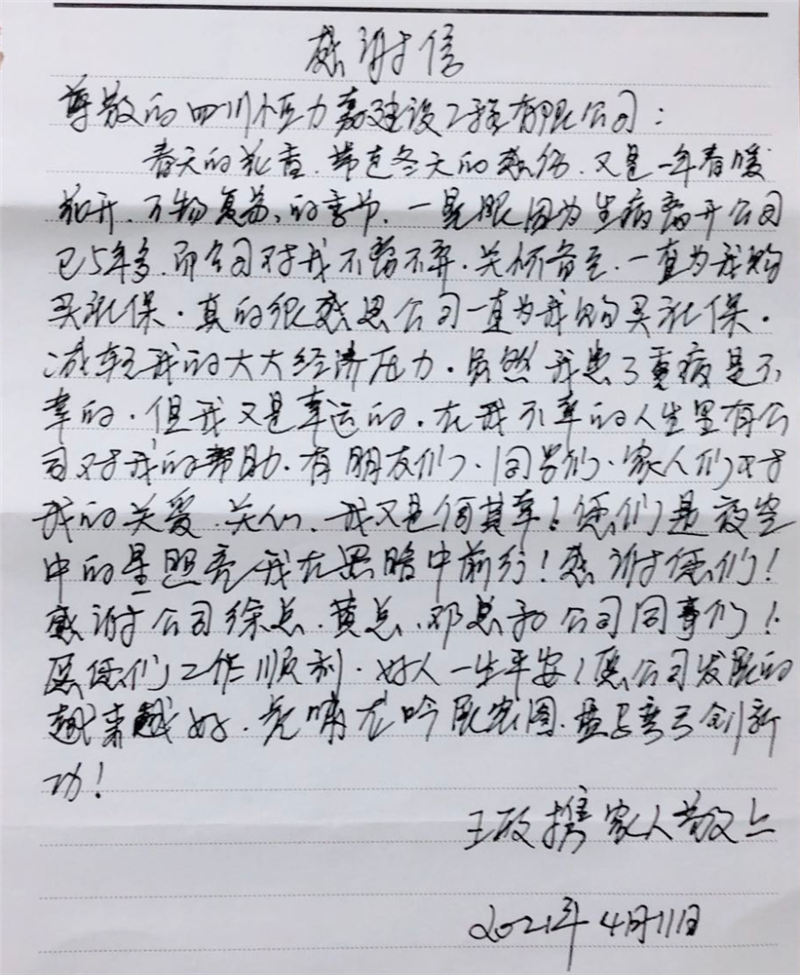 感谢信
尊敬的四川恒力嘉建设工程有限公司：
春天的花香，带走冬天的感伤，又是一年春暖
花开，万物复苏，的季节，一晃眼因为生病离开公司
已5年多，而公司对我不离不弃，关怀备至，一直为我购
买社保。真的很感恩公司一直为我购买社保，
减轻我的大大经济压力。虽然我患了重病是不
幸的，但我又是幸运的，在我不幸的人生里有公
司对于我的帮助，有朋友们、同学们、家人们对于
我的关爱、关心，我又是何其幸！您们是夜空
中的星照亮我在黑暗中前行！感谢您们！
感谢公司徐总、黄总、邓总和公司同事们！
愿您们工作顺利，好人一生平安！愿公司发展的
越来越好，虎啸龙吟展宏图，盘马弯弓创新
功！
王政携家人敬上
2021年4月11日